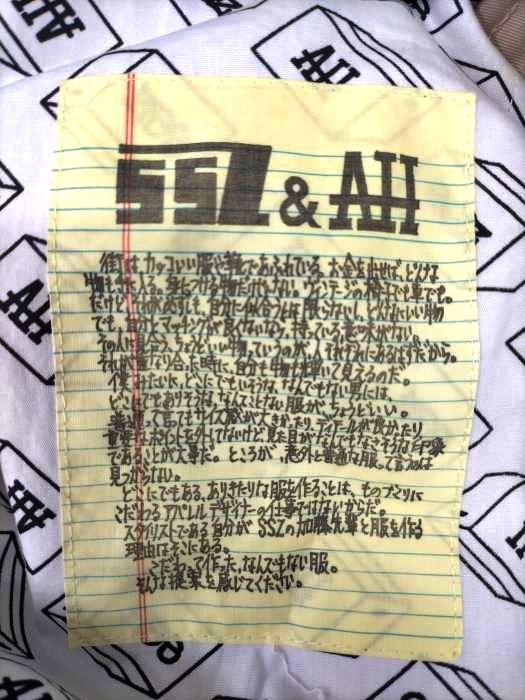 SSZ & AH
街は、カッコいい服や靴であふれている。お金を出せば、どんな
物も手に入る。身につける物だけじゃない。ヴィンテージの椅子でも車でも。
だけど、それが必ずしも、自分に似合うとは限らないし、どんなにいい物
でも、自分とマッチングが良くないなら、持っている意味がない。
その人に見合う、ちょうどいい物っていうのが、人それぞれにあるはずだから。
それが重なり合った時に、自分も物も輝いて見えるのだ。
僕みたいに、どこにでもいそうな、なんでもない男には、
どこにでもありそうな、なんてことない服が、ちょうどいい。
普通って言ってもサイズ感が大きかったり、ディテールが良かったり
重要なポイントを外してないけど、見た目がなんでもなさそうな印象
であることが大事だ。ところが、意外と普通な服って言うのは
見つからない。
どこにでもある、ありきたりな服を作ることは、ものづくりに
こだわるアパレルデザイナーの仕事ではないからだ。
スタイリストである自分が SSZの加藤先輩と服を作る
理由はそこにある。
こだわって作った、なんでもない服。
そんな提案を感じてください。
AH
AH
AH
AH
AH